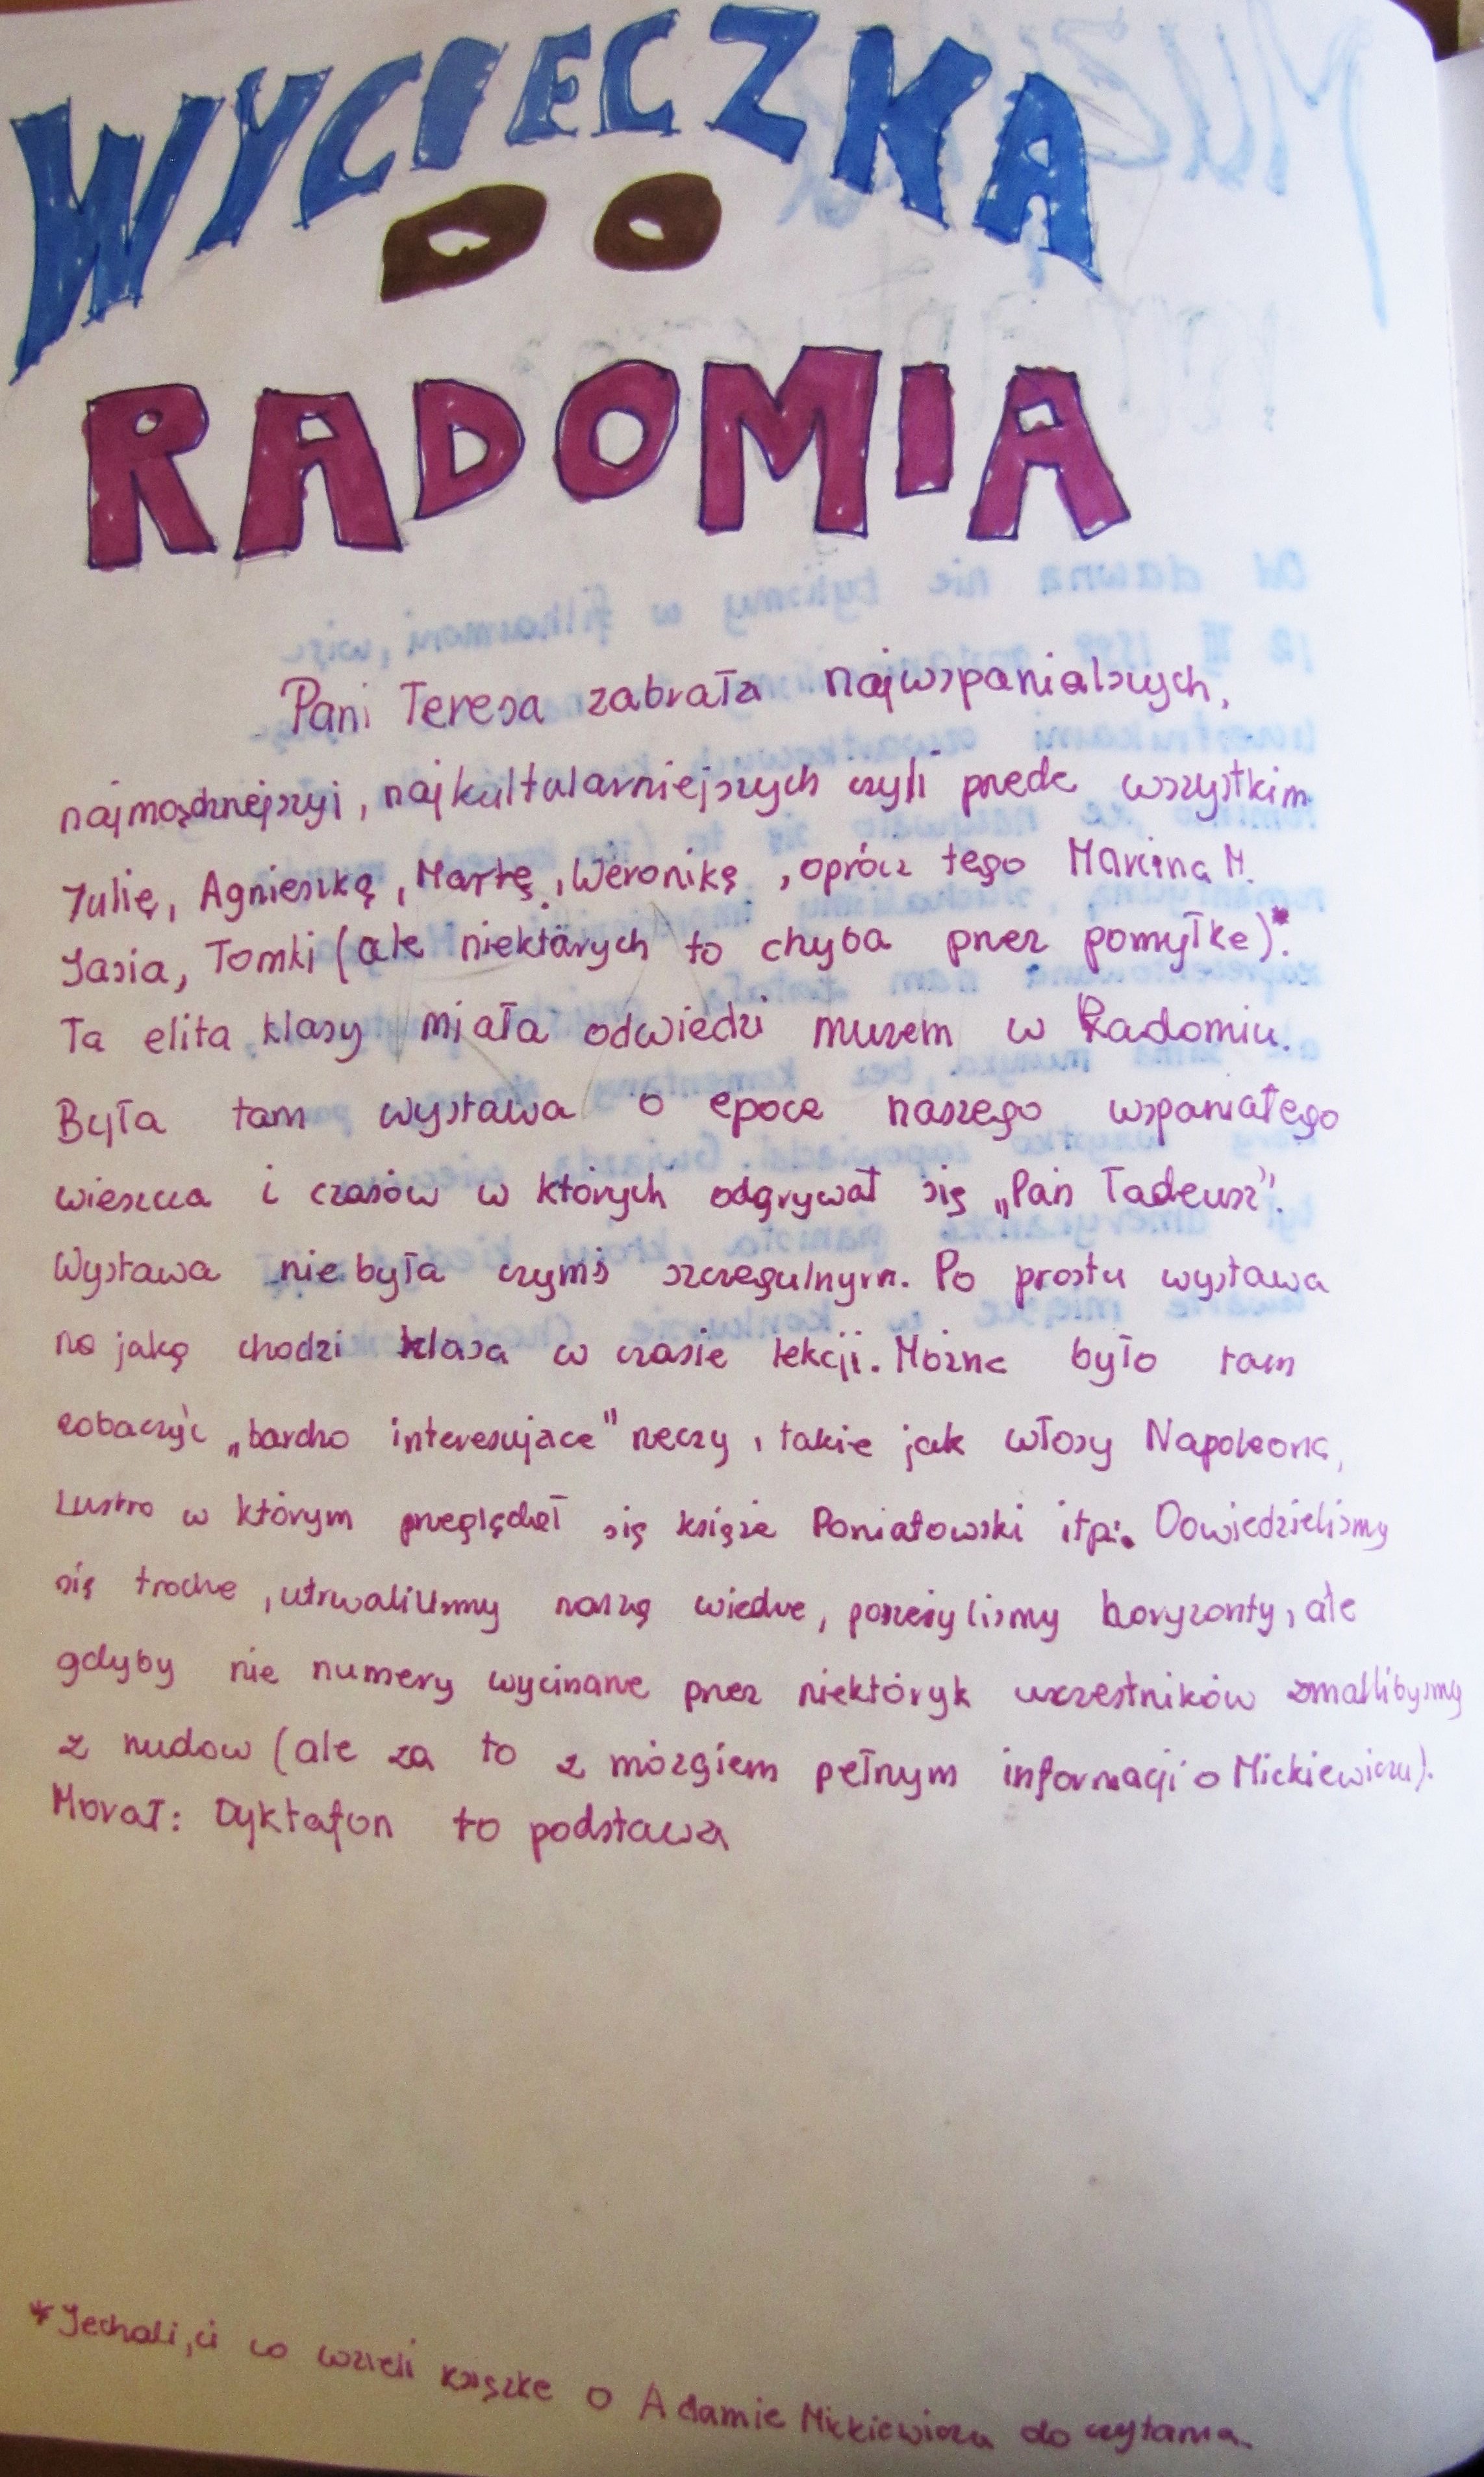 WYCIECZKA
DO
RADOMIA
Pani Teresa zabrała najwspanialszych,
najmądrzejszyi, najkultularniejszych czyli przede wszystkim
Julię, Agnieszkę, Martę, Weronikę, oprócz tego Marcina M.
Jasia, Tomki (ale niektórych to chyba przez pomyłke)*.
Ta elita klasy miała odwiedzi muzem w Radomiu.
Była tam wystawa o epoce naszego wspaniałego
wieszcza i czasów w których odgrywał się „Pan Tadeusz”.
Wystawa nie była czymś szczegulnym. Po prostu wystawa
na jaką chodzi klasa w czasie lekcji. Można było tam
zobaczyć „bardzo interesujace” rzeczy, takie jak włosy Napoleona,
Lustro w którym przeglądał się książe Poniatowski itp. Dowiedzielismy
się troche, utrwalilismy naszą wiedze, poszezylismy horyzonty, ale
gdyby nie numery wycinane przez niektóryk uczestników zmarlibysmy
z nudow (ale za to z mózgiem pełnym informacji o Mickiewiczu).
Morał: Dyktafon to podstawa
*Jechali, ci co wzieli książke o Adamie Mickiewiczu do czytania.